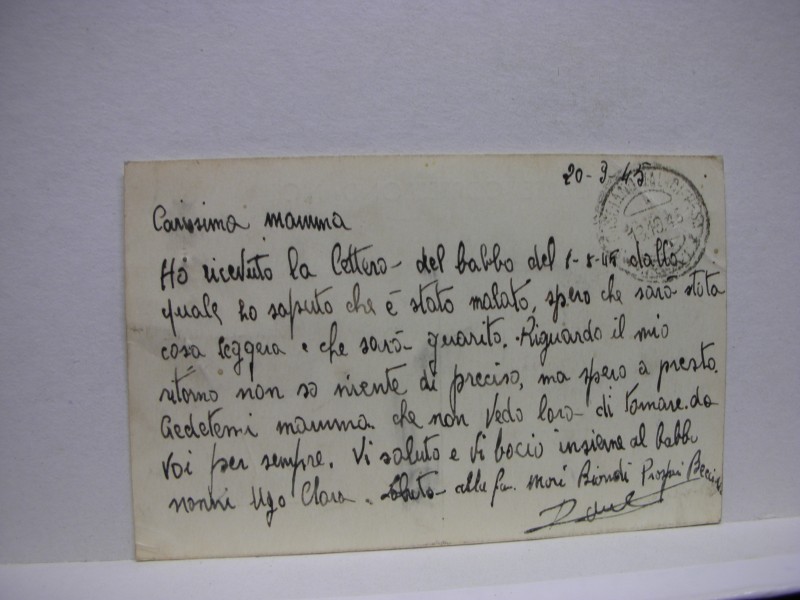 20-9-45
Carissima mamma
Ho ricevuto la lettera del babbo del 1-8-45 dalla
quale ho saputo che è stato malato, spero che sarà stata
cosa leggera e che sarà guarito. Riguardo il mio
ritorno non so niente di preciso, ma spero a presto.
Credetemi mamma che non vedo lora di tornare da
voi per sempre. Vi saluto e vi bacio insieme al babbo
nonni Ugo Clara. Saluto alla fam. Mori Biondi